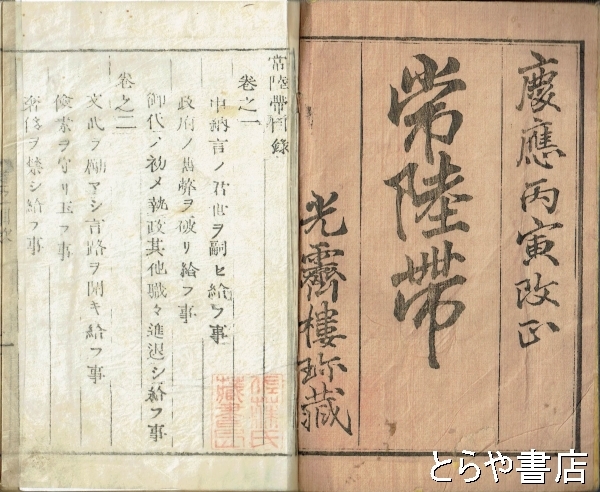 慶應丙寅改正
常陸帶
光霽樓珎藏
常陸帶目錄
卷之一
中納言ノ君世ヲ嗣ヒ給フ事
政府ノ舊弊ヲ破リ給フ事
御代ノ初メ執政其他職々進退シ給フ事
卷之二
文武ヲ勵マシ言路ヲ開キ給フ事
儉素ヲ守リ玉フ事
奢侈ヲ禁シ給フ事
とらや書店